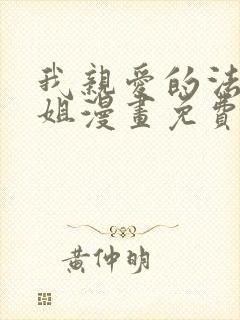 我親愛的法
姐漫畫免費
黃仲明